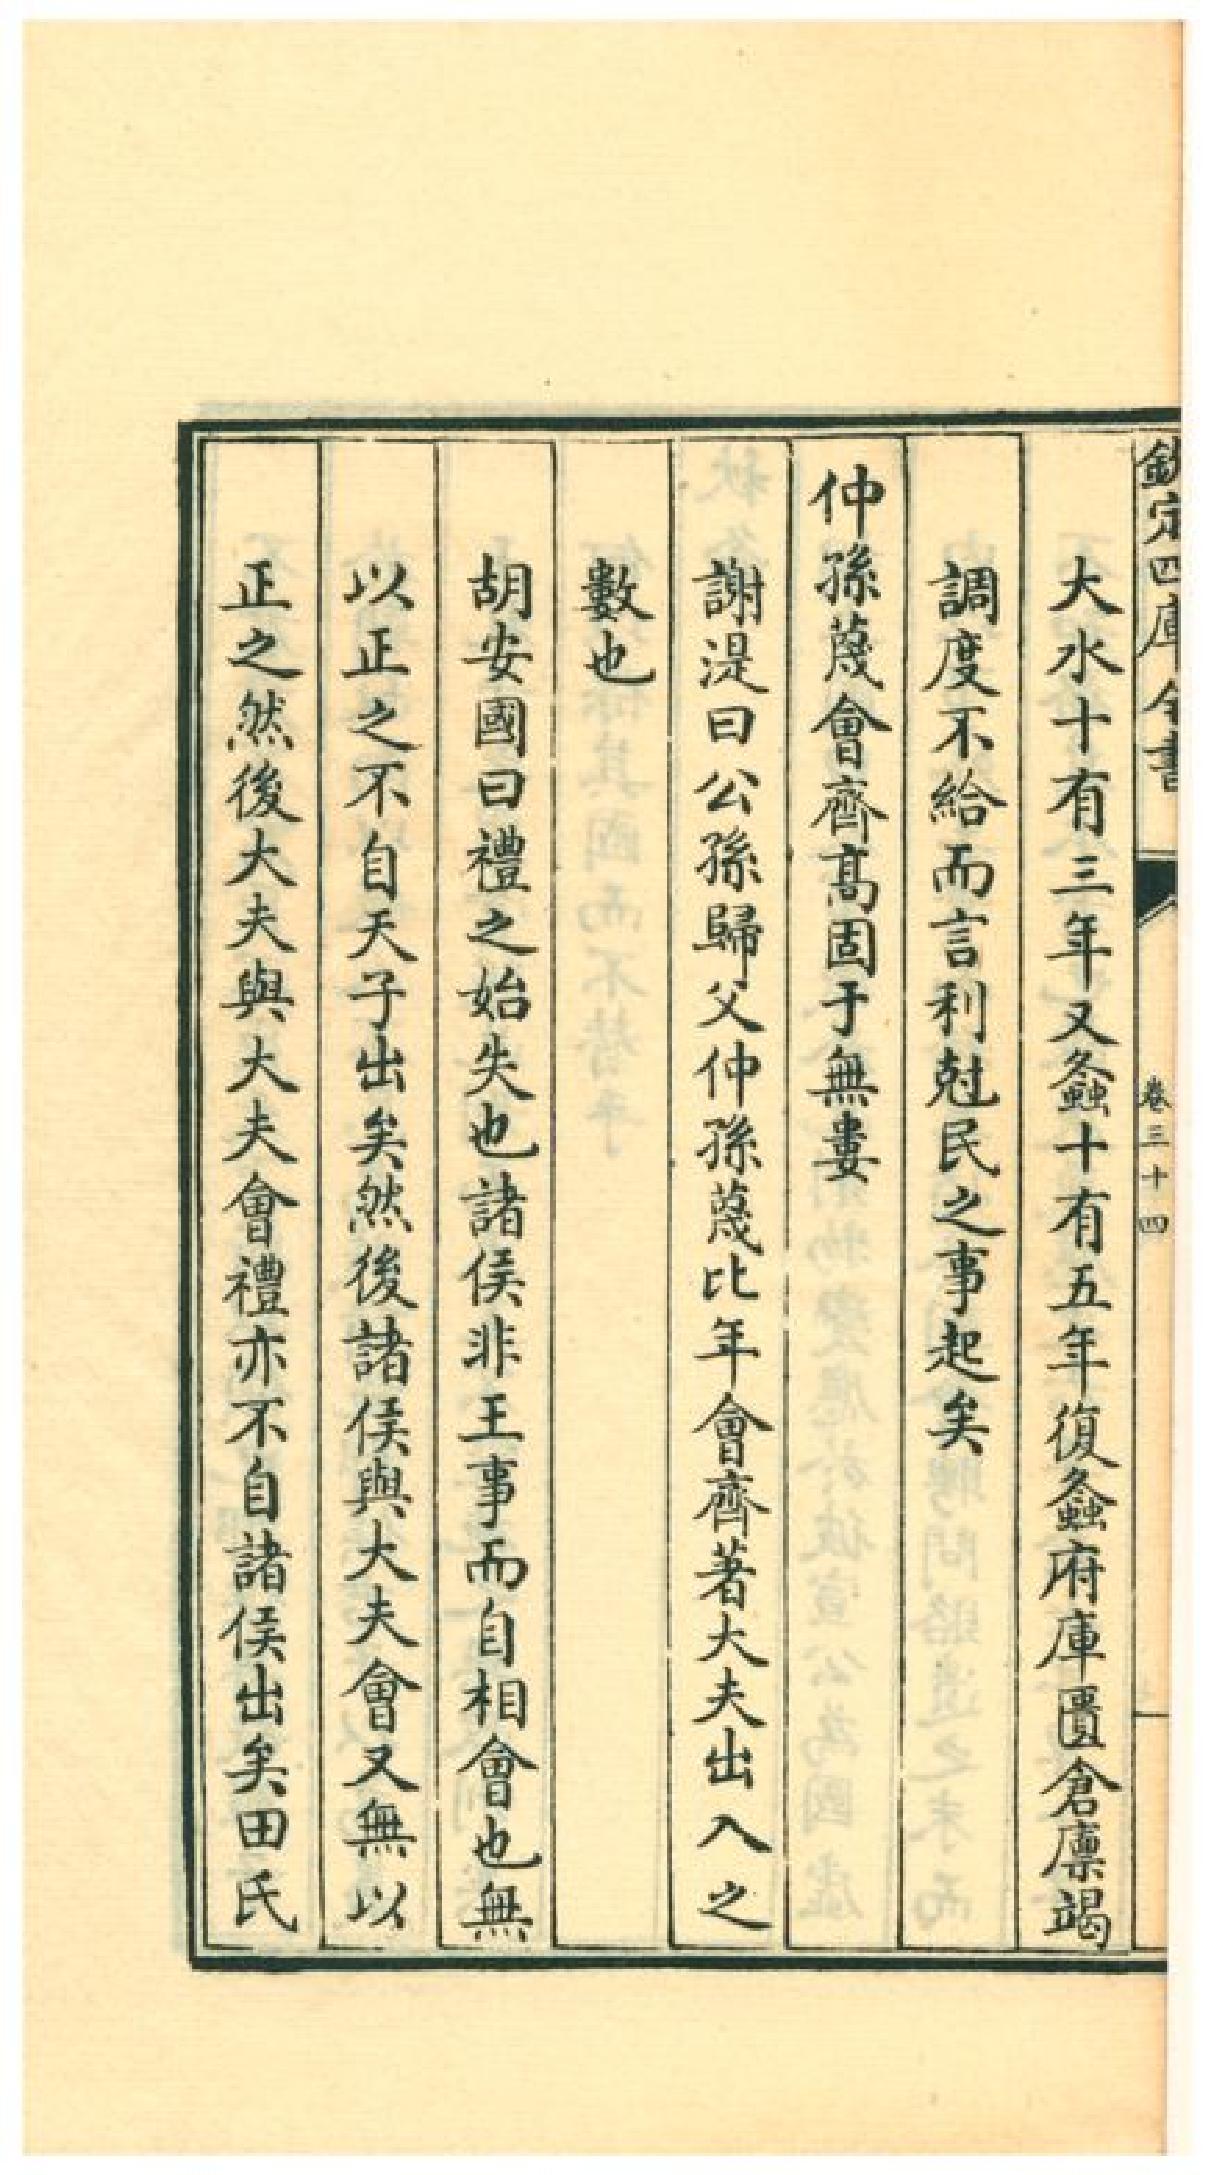 欽定四庫全書
卷三十四
大水十有三年又螽十有五年復螽府庫匱倉廩竭
調度不給而言利尅民之事起矣
仲孫蔑會齊髙固于無婁
謝湜曰公孫歸父仲孫蔑比年會齊著大夫出入之
數也
胡安國曰禮之始失也諸侯非王事而自相會也無
以正之不自天子出矣然後諸侯與大夫會又無以
正之然後大夫與大夫會禮亦不自諸侯出矣田氏